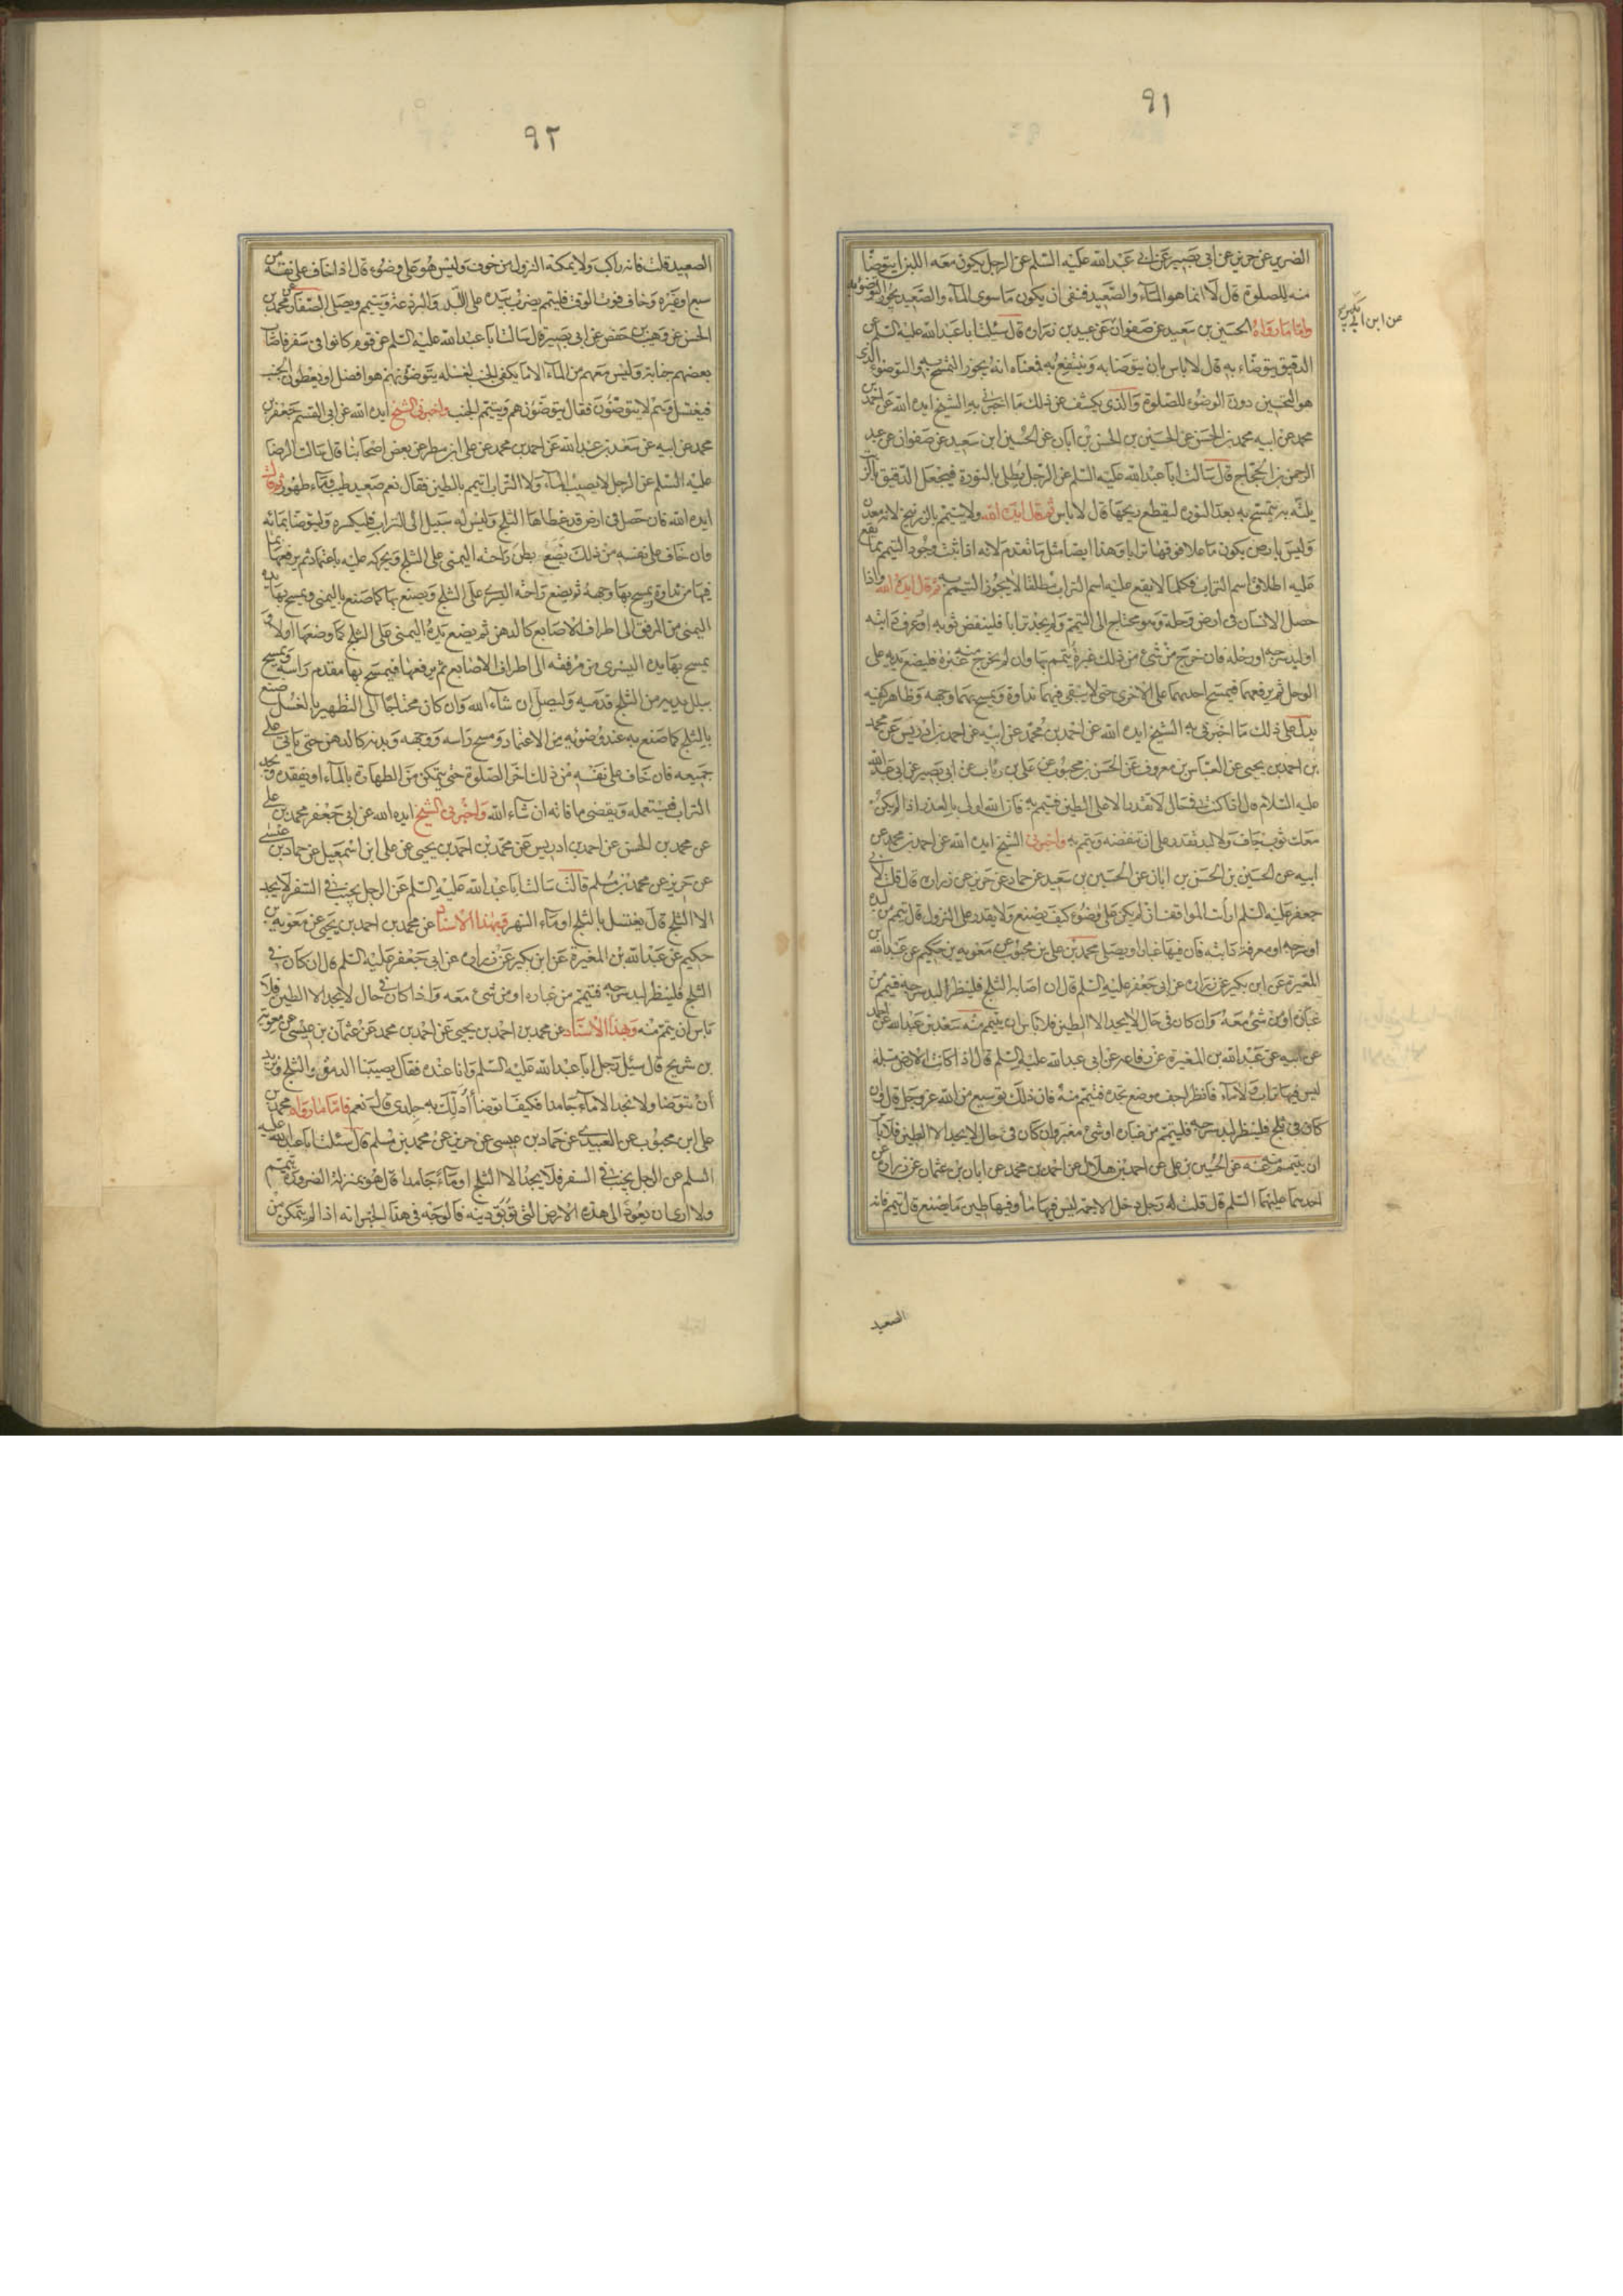 ٩١
الضرير عن حريز عن ابى بصير عن ابى عبد الله عليه السلم عن الرجل يكون معه اللبن ايتوضأ
منه للصلوة قال لا انما هو المآء والصعيد فنفى ان يكون ما سوى المآء والصعيد يجوز التوضؤ به
واما ما رواه الحسين بن سعيد عن صفوان عن عبيد بن زرارة قال سئلت ابا عبد الله عليه السلم عن
عن ابن بكير
الدقيق يتوضاء به قال لا باس بان يتوضا به وينتفع به فمعناه انه يجوز التمسح به والتوضؤ الذى
هو التحسين دون الوضوء للصلوة والذى يكشف عن ذلك ما اخبرنى به الشيخ ايده الله عن احمد بن
محمد عن ابيه محمد بن الحسن عن الحسين بن الحسن بن ابان عن الحسين ابن سعيد عن صفوان عن عبد
الرحمن بن الحجاج قال سالت ابا عبد الله عليه السلم عن الرجل يطلى بالنورة فيجعل الدقيق بالزيت
يلته به يتمسح به بعد النورة ليقطع ريحها قال لا باس ثم قال ايده الله ولا يتيمم بالزرنيخ لانه معدن
وليس بارض يكون ما علا فوقها ترابا وهذا ايضا مثل ما تقدم لانه اذا ثبت وجود التيمم بما يقع
عليه اطلاق اسم التراب فكلما لا يقع عليه اسم التراب مطلقا لا يجوز التيمم به ثم قال ايده الله واذا
حصل الانسان فى ارض وحلة وهو محتاج الى التيمم ولم يجد ترابا فلينفض ثوبه او عرف دابته
او لبد سرجه او رحله فان خرج من شئ من ذلك غبرة يتيمم بها وان لم يخرج منه غبرة فليضع يديه على
الوحل ثم يرفعهما فيمسح احديهما على الاخرى حتى لا يبقى فيهما نداوة ويمسح بهما وجهه وظاهر كفيه
يدل على ذلك ما اخبرنى به الشيخ ايده الله عن احمد بن محمد عن ابيه عن احمد بن ادريس عن محمد
بن احمد بن يحيى عن العباس بن معروف عن الحسن بن محبوب عن على بن رياب عن ابى بصير عن ابى عبد الله
عليه السلام قال اذا كنت فى حال لا تقدر الا على الطين فتيمم به فان الله اولى بالعذر اذا لم يكن
معك ثوب جاف ولا لبد تقدر على ان تنفضه وتتيمم به واخبرنى الشيخ ايده الله عن احمد بن محمد عن
ابيه عن الحسين بن الحسن بن ابان عن الحسين بن سعيد عن حماد عن حريز عن زرارة قال قلت لابى
جعفر عليه السلم ارأيت المواقف ان لم يكن على وضوء كيف يصنع ولا يقدر على النزول قال يتيمم من لبده
او سرجه او معرفة دابته فان فيها غبارا ويصلى محمد بن على بن محبوب عن معوية بن حكيم عن عبد الله بن
المغيرة عن ابن بكير عن زرارة عن ابى جعفر عليه السلم قال ان اصابه الثلج فلينظر لبد سرجه فيتيمم من
غباره او من شئ معه وان كان فى حال لا يجد الا الطين فلا باس ان يتيمم منه سعد بن عبد الله عن احمد
عن ابيه عن عبد الله بن المغيرة عن رفاعة عن ابى عبد الله عليه السلم قال اذا كانت الارض مبتلة
ليس فيها تراب ولا مآء فانظر اجف موضع تجده فتيمم منه فان ذلك توسيع من الله عز وجل قال فان
كان فى ثلج فلينظر لبد سرجه فليتيمم من غباره او شئ مغبر وان كان فى حال لا يجد الا الطين فلا باس
ان يتيمم منه عنه عن الحسين بن على عن احمد بن هلال عن احمد بن محمد عن ابان بن عثمان عن زرارة عن
احديهما عليهما السلم قال قلت له رجل دخل الاجمة ليس فيها ماء وفيها طين ما يصنع قال يتيمم فانه
الصعيد
٩٢
الصعيد قلت فانه راكب ولا يمكنه النزول من خوف وليس هو على وضوء قال اذا خاف على نفسه من
سبع او غيره وخاف فوت الوقت فليتيمم يضرب بيده على اللبد والبرذعة ويتيمم ويصلى الصفار عن محمد بن
الحسن عن وهيب بن حفص عن ابى بصير قال سالت ابا عبد الله عليه السلم عن قوم كانوا فى سفر فاصاب
بعضهم جنابة وليس معهم من المآء الا ما يكفى الجنب لغسله يتوضؤن هم هو افضل او يعطون الجنب
فيغتسل وهم لا يتوضؤن فقال يتوضؤن هم ويتيمم الجنب واخبرنى الشيخ ايده الله عن ابى القسم جعفر بن
محمد عن ابيه عن سعد بن عبد الله عن احمد بن محمد عن على ابن مطر عن بعض اصحابنا قال سالت الرضا
عليه السلم عن الرجل لا يصيب المآء ولا التراب ايتيمم بالطين فقال نعم صعيد طيب ومآء طهور ثم قال
ايده الله فان حصل فى ارض قد غطاها الثلج وليس له سبيل الى التراب فليكسره وليتوضا بمائه
وان خاف على نفسه من ذلك يضع بطن راحته اليمنى على الثلج ويحركه عليه باعتماد ثم يرفعها بما
فيها من نداوة يمسح بها وجهه ثم يضع راحته اليسرى على الثلج ويصنع بها كما صنع باليمنى ويمسح بها يده
اليمنى من المرفق الى اطراف الاصابع كالدهن ثم يضع يده اليمنى على الثلج كما وضعها اولا
يمسح بها يده اليسرى من مرفقه الى اطراف الاصابع ثم يرفعها فيمسح بها مقدم راسه ويمسح
ببلل يديه من الثلج قدميه وليصل ان شآء الله وان كان محتاجا الى التطهير بالغسل صنع
بالثلج كما صنع به عند وضوئه من الاعتماد ومسح راسه ووجهه وبدنه كالدهن حتى ياتى على
جميعه فان خاف على نفسه من ذلك اخر الصلوة حتى يتمكن من الطهارة بالمآء او يفقده ويجد
التراب فيستعمله ويقضى ما فاته ان شآء الله واخبرنى الشيخ ايده الله عن ابى جعفر محمد بن على
عن محمد بن الحسن عن احمد بن ادريس عن محمد بن احمد بن يحيى عن على ابن اسمعيل عن حماد بن عيسى
عن حريز عن محمد بن مسلم قال سالت ابا عبد الله عليه السلم عن الرجل يجنب فى السفر لا يجد
الا الثلج قال يغتسل بالثلج او مآء النهر وبهذا الاسناد عن محمد بن احمد بن يحيى عن معوية بن
حكيم عن عبد الله بن المغيرة عن ابن بكير عن زرارة عن ابى جعفر عليه السلم قال ان كان فى
الثلج فلينظر لبد سرجه فيتيمم من غباره او من شئ معه واذا كان فى حال لا يجد الا الطين فلا
باس ان يتيمم منه وبهذا الاسناد عن محمد بن احمد بن يحيى عن احمد بن محمد عن عثمان بن عيسى عن معوية
بن شريح قال سئل رجل ابا عبد الله عليه السلم وانا عنده فقال يصيبنا الدمق والثلج ونريد
ان نتوضا ولا نجد الا مآء جامدا فكيف اتوضأ أدلك به جلدى قال نعم فاما ما رواه محمد بن
على ابن محبوب عن العبيدى عن حماد بن عيسى عن حريز عن محمد بن مسلم قال سئلت ابا عبد الله عليه
السلم عن الرجل يجنب فى السفر فلا يجد الا الثلج او مآء جامدا قال هو بمنزلة الضرورة يتيمم
ولا ارى ان يعود الى هذه الارض التى توبق دينه فالوجه فى هذا الخبر انه اذا لم يتمكن من